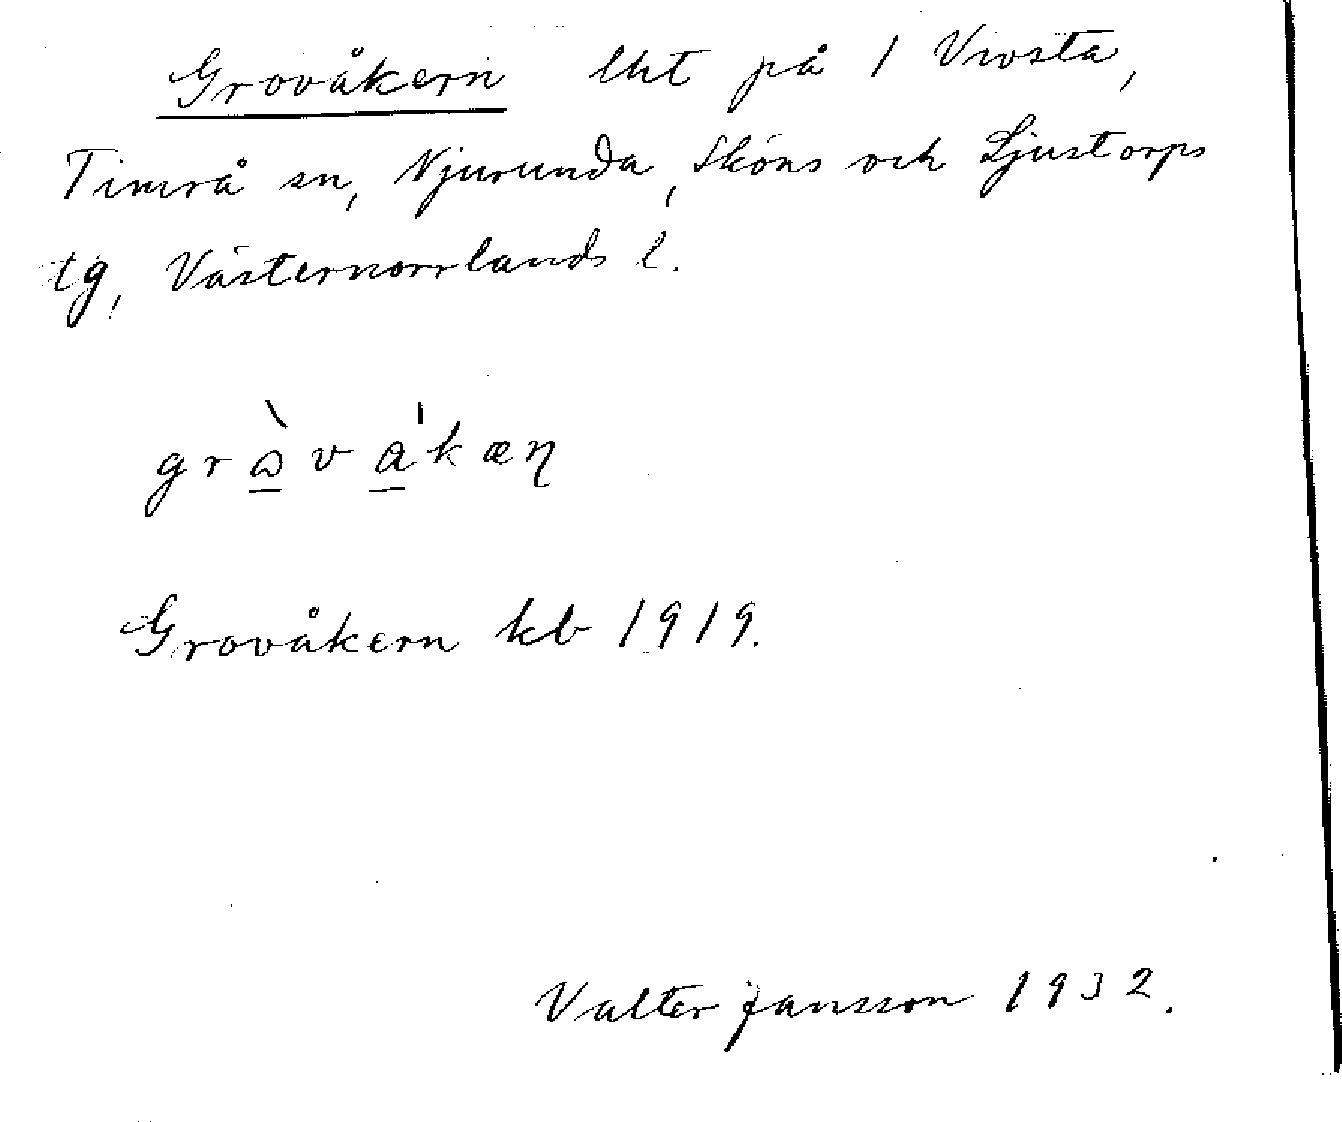 Grovåkern lht på 1 Vivsta,
Timrå sn, Njurunda, Sköns och Ljustorps
tg, Västernorrlands l.
grὼ̲va̲̍kæɳ
Grovåkern kb 1919.
Valter Jansson 1932.